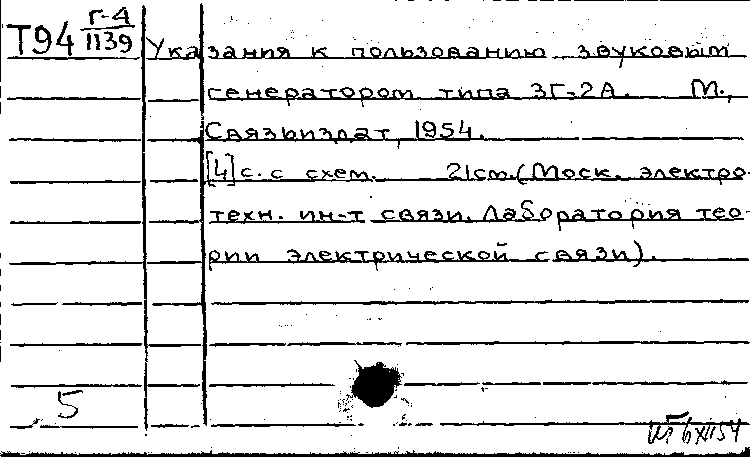 Т94 Г-Д
1139
Указания к пользованию звуковым
генератором типа ЗГ-2А. М.,
Связьиздат, 1954.
[4] с. с схем. 21 см. (Моск. электро-
техн. ин-т связи. Лаборатория тео-
рии электрической связи).
5
6 XII 54